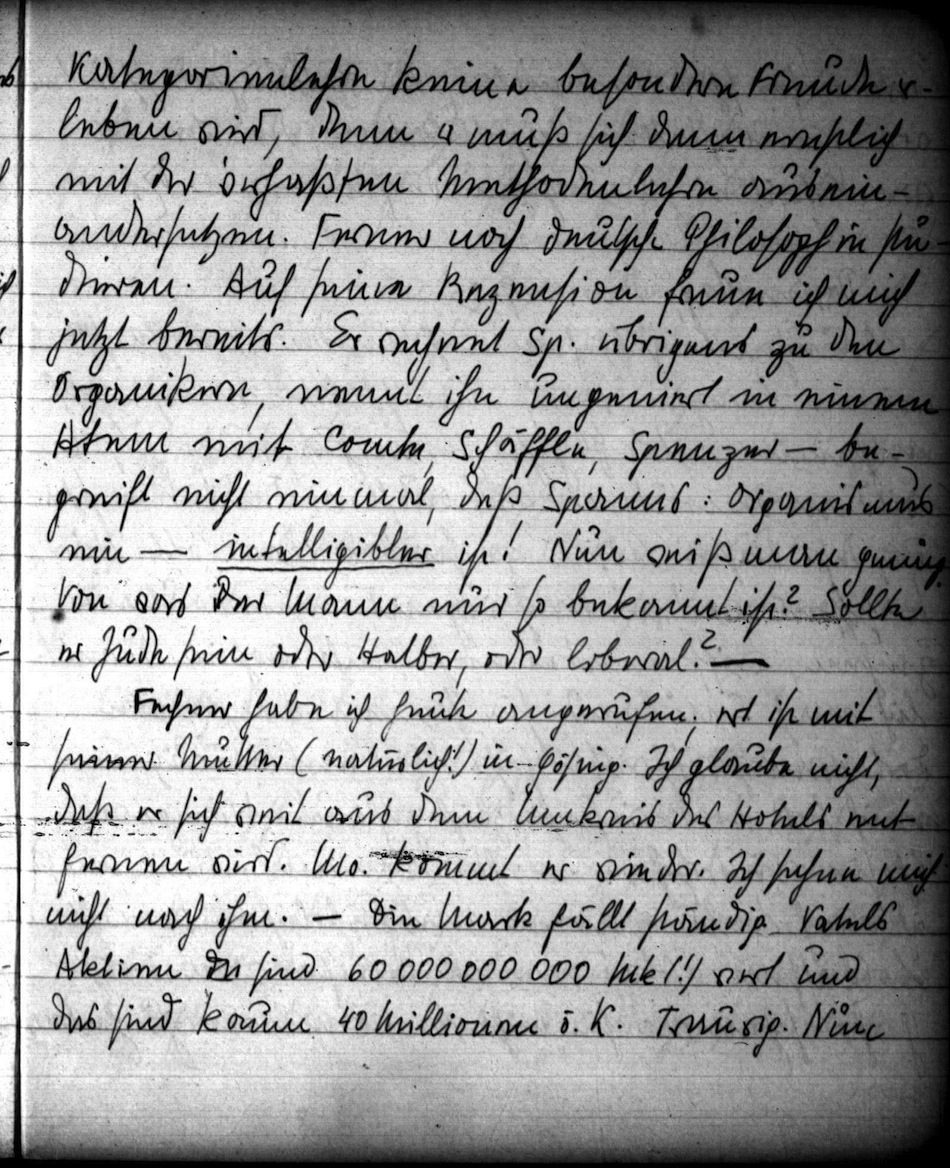 Kategorienlehre keine besondere Freude er-
leben wird, denn er muß sich dann ernstlich
mit der verhaßten Methodenlehre ausein-
andersetzen. Ferner noch deutsche Philosophie stu-
dieren. Auf seine Rezension freue ich mich
jetzt bereits. Er rechnet Sp. übrigens zu den
Organikern, nennt ihn ungeniert in einem
Atem mit Comte, Schäffle, Spenzer — be-
greift nicht einmal, daß Spanns: Organismus
ein — intelligibler ist! Nun weiß man genug
Von was der Mann nur so bekannt ist? Sollte
er Jude sein oder Halber, oder liberal? —
Fechner habe ich heute angerufen, er ist mit
seiner Mutter (natürlich!) in Gösing. Ich glaube nicht,
daß er sich weit aus dem Umkreis des Hotels ent
fernen wird. Mo. kommt er wieder. Ich sehne mich
nicht nach ihm. — Die Mark fällt ständig. Vaters
Aktien sind 60 000 000 000 Mk (!) wert und
das sind kaum 40 Millionen ö. K. Traurig. Nun